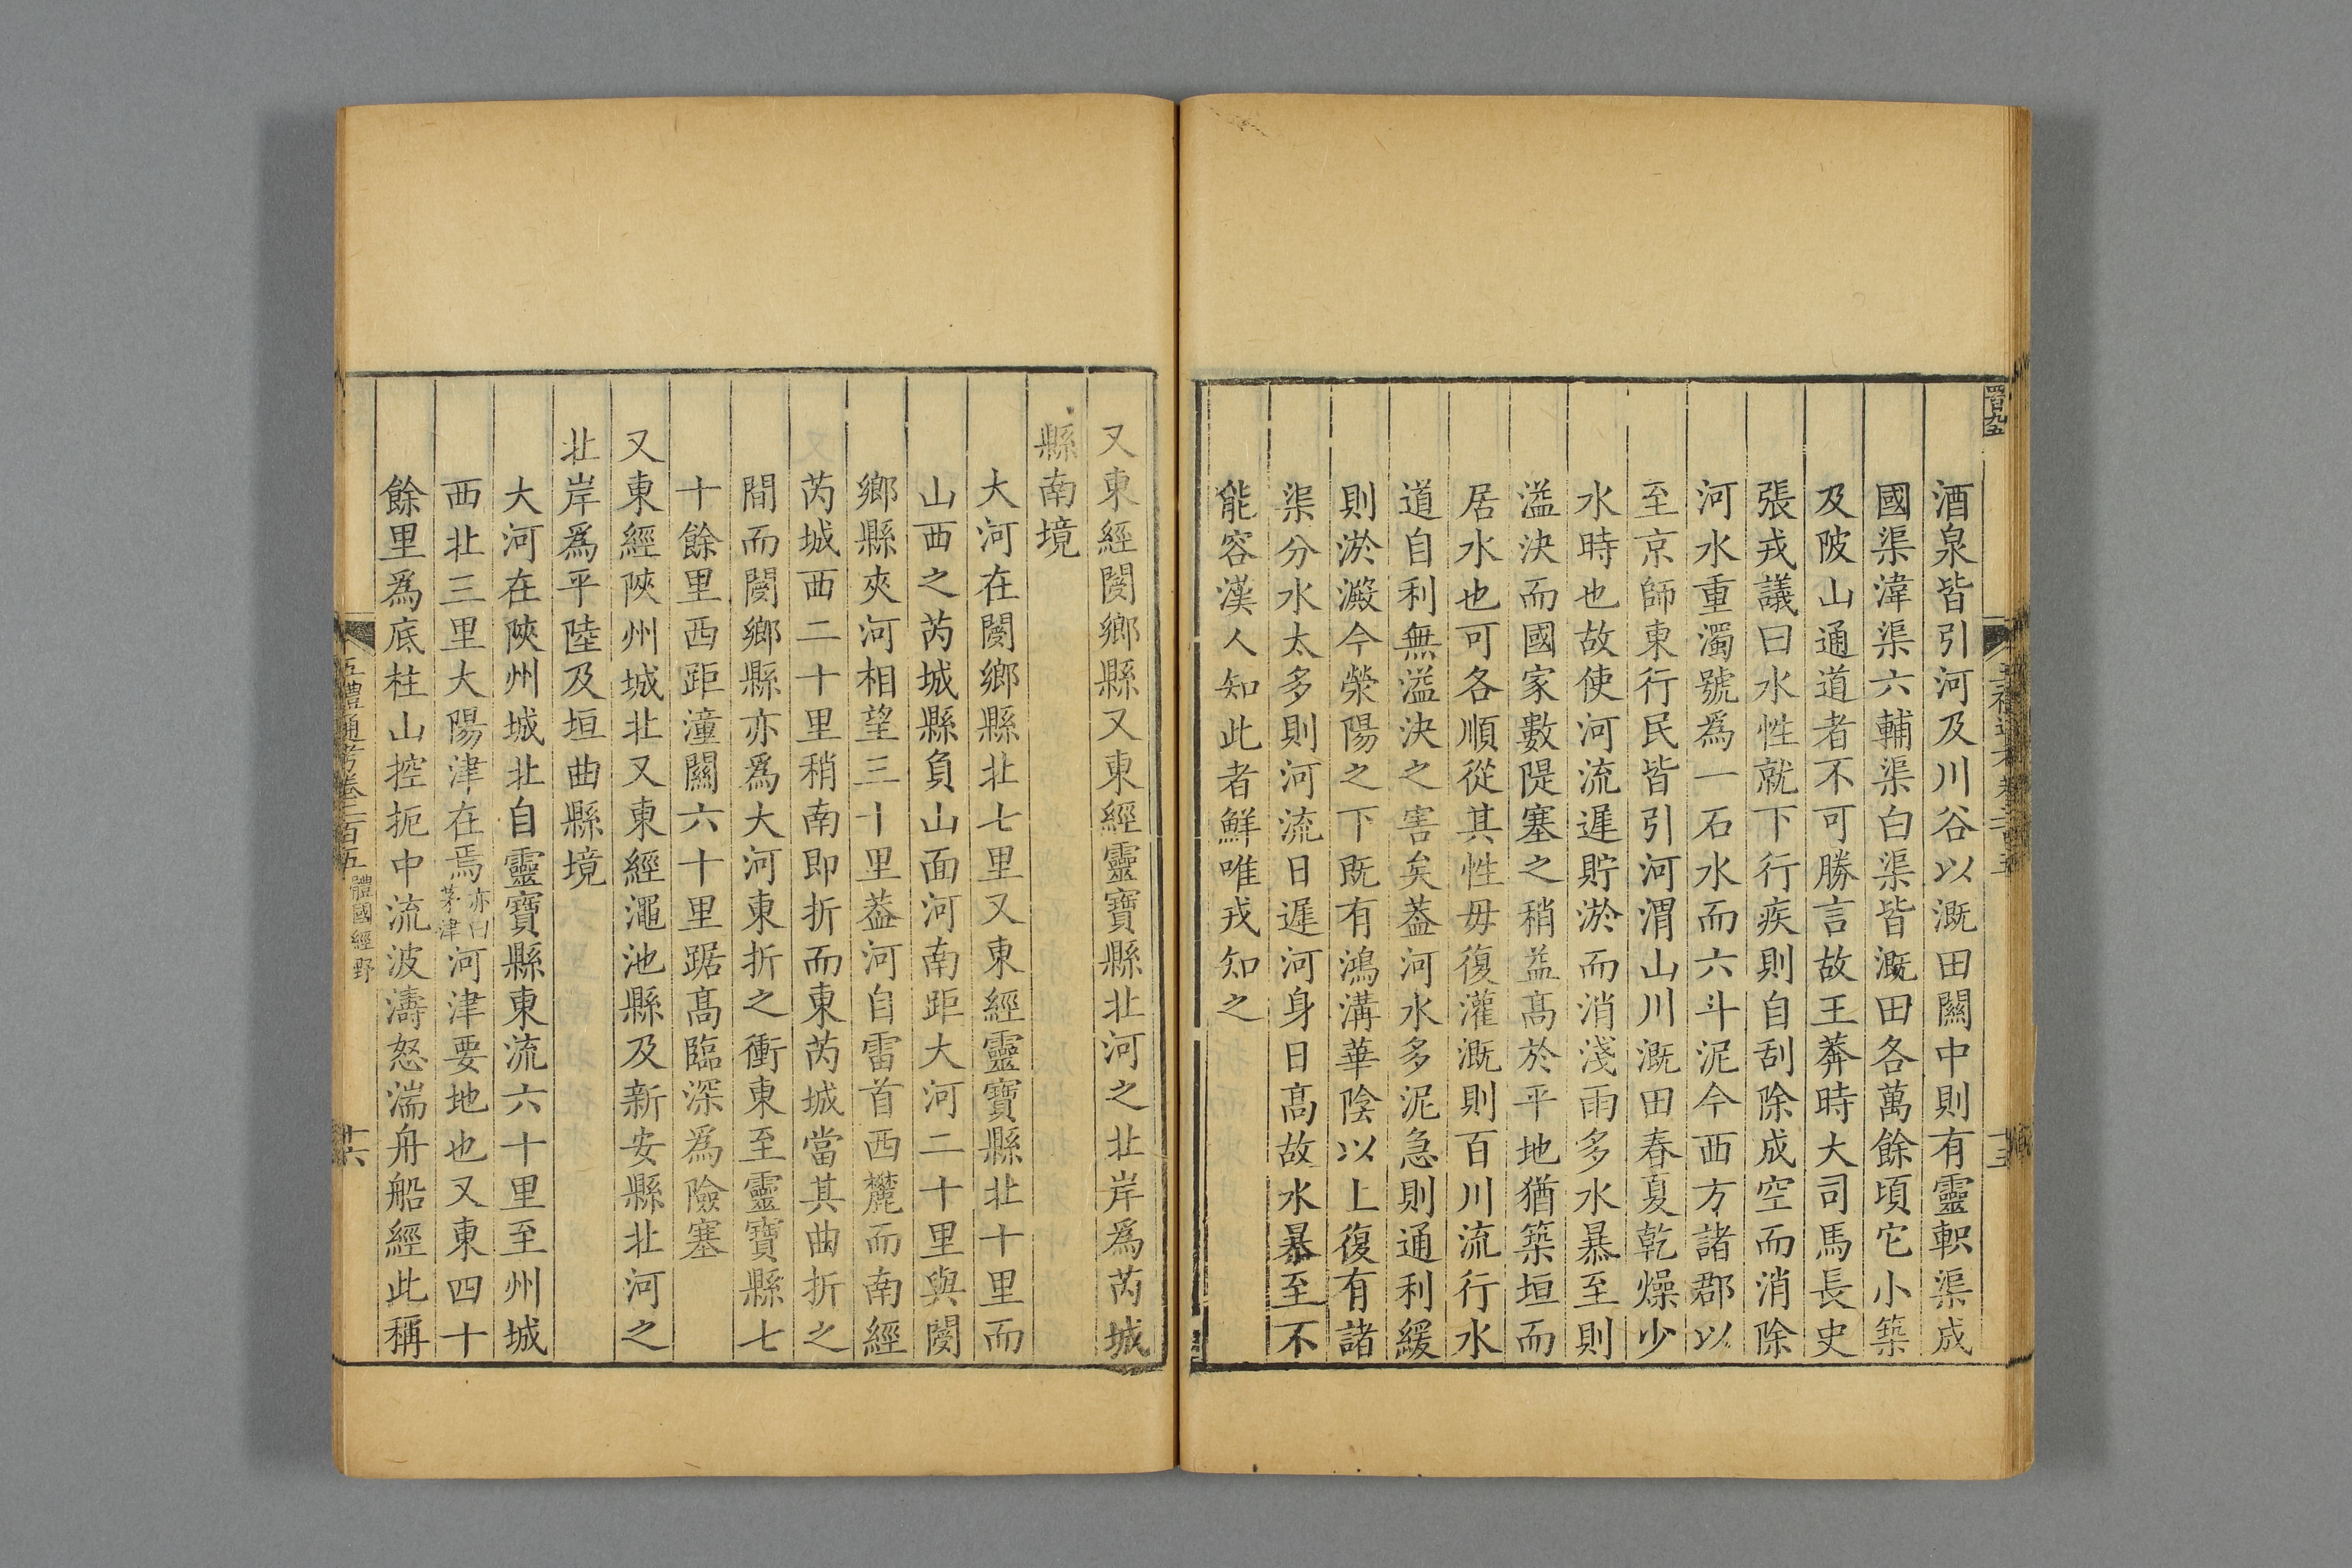 酒泉皆引河及川谷以溉田關中則有靈軹渠成
國渠湋渠六輔渠白渠皆溉田各萬餘頃它小築
及陂山通道者不可勝言故王莽時大司馬長史
張戎議曰水性就下行疾則自刮除成空而消除
河水重濁號爲一石水而六斗泥今西方諸郡以
至京師東行民皆引河渭山川溉田春夏乾燥少
水時也故使河流遲貯淤而消淺雨多水暴至則
溢決而國家數隄塞之稍益髙於平地猶築垣而
居水也可各順從其性毋復灌溉則百川流行水
道自利無溢決之害矣葢河水多泥急則通利緩
則淤澱今滎陽之下既有鴻溝華陰以上復有諸
渠分水太多則河流日遲河身日髙故水暴至不
能容漢人知此者鮮唯戎知之
又東經閿鄉縣又東經靈寶縣北河之北岸爲芮城
縣南境
大河在閿鄉縣北七里又東經靈寶縣北十里而
山西之芮城縣負山面河南距大河二十里與閿
鄉縣夾河相望三十里葢河自雷首西麓而南經
芮城西二十里稍南即折而東芮城當其曲折之
間而閿鄉縣亦爲大河東折之衝東至靈寶縣七
十餘里西距潼關六十里踞髙臨深爲險塞
又東經陜州城北又東經澠池縣及新安縣北河之
北岸爲平陸及垣曲縣境
大河在陜州城北自靈寶縣東流六十里至州城
西北三里大陽津在焉亦曰茅津河津要地也又東四十
餘里爲底柱山控扼中流波濤怒湍舟船經此稱
五禮通考卷二百五 體國經野 十六